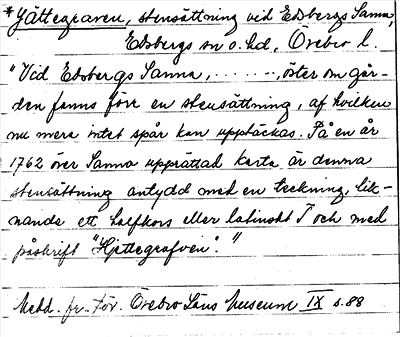 *Jättegraven, stensättning vid Edsbergs Sanna,
Edsbergs sn o. hd, Örebro l.
"Vid Edsbergs Sanna, . . . . . . ., öster om går-
den fanns förr en stensättning, af hvilken
nu mera intet spår kan upptäckas. På en år
1762 över Sanna upprättad karta är denna
stensättning antydd med en teckning, lik-
nande ett halfkors eller latinskt T och med
påskrift "Hjettegrafven"."
Medd. fr. för. Örebro Läns museum IX s. 88